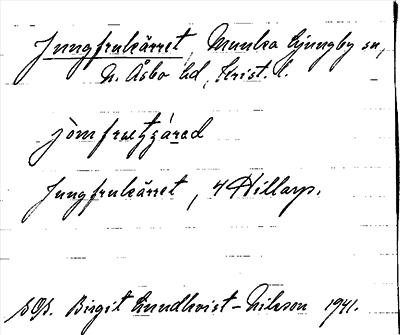 Jungfrukärret, Munka Ljungby sn,
N. Åsbo hd, Krist. l.
Jungfrukärret, 4 Hillarp.
SOS. Birgit Lundkvist-Nilsson 1941.